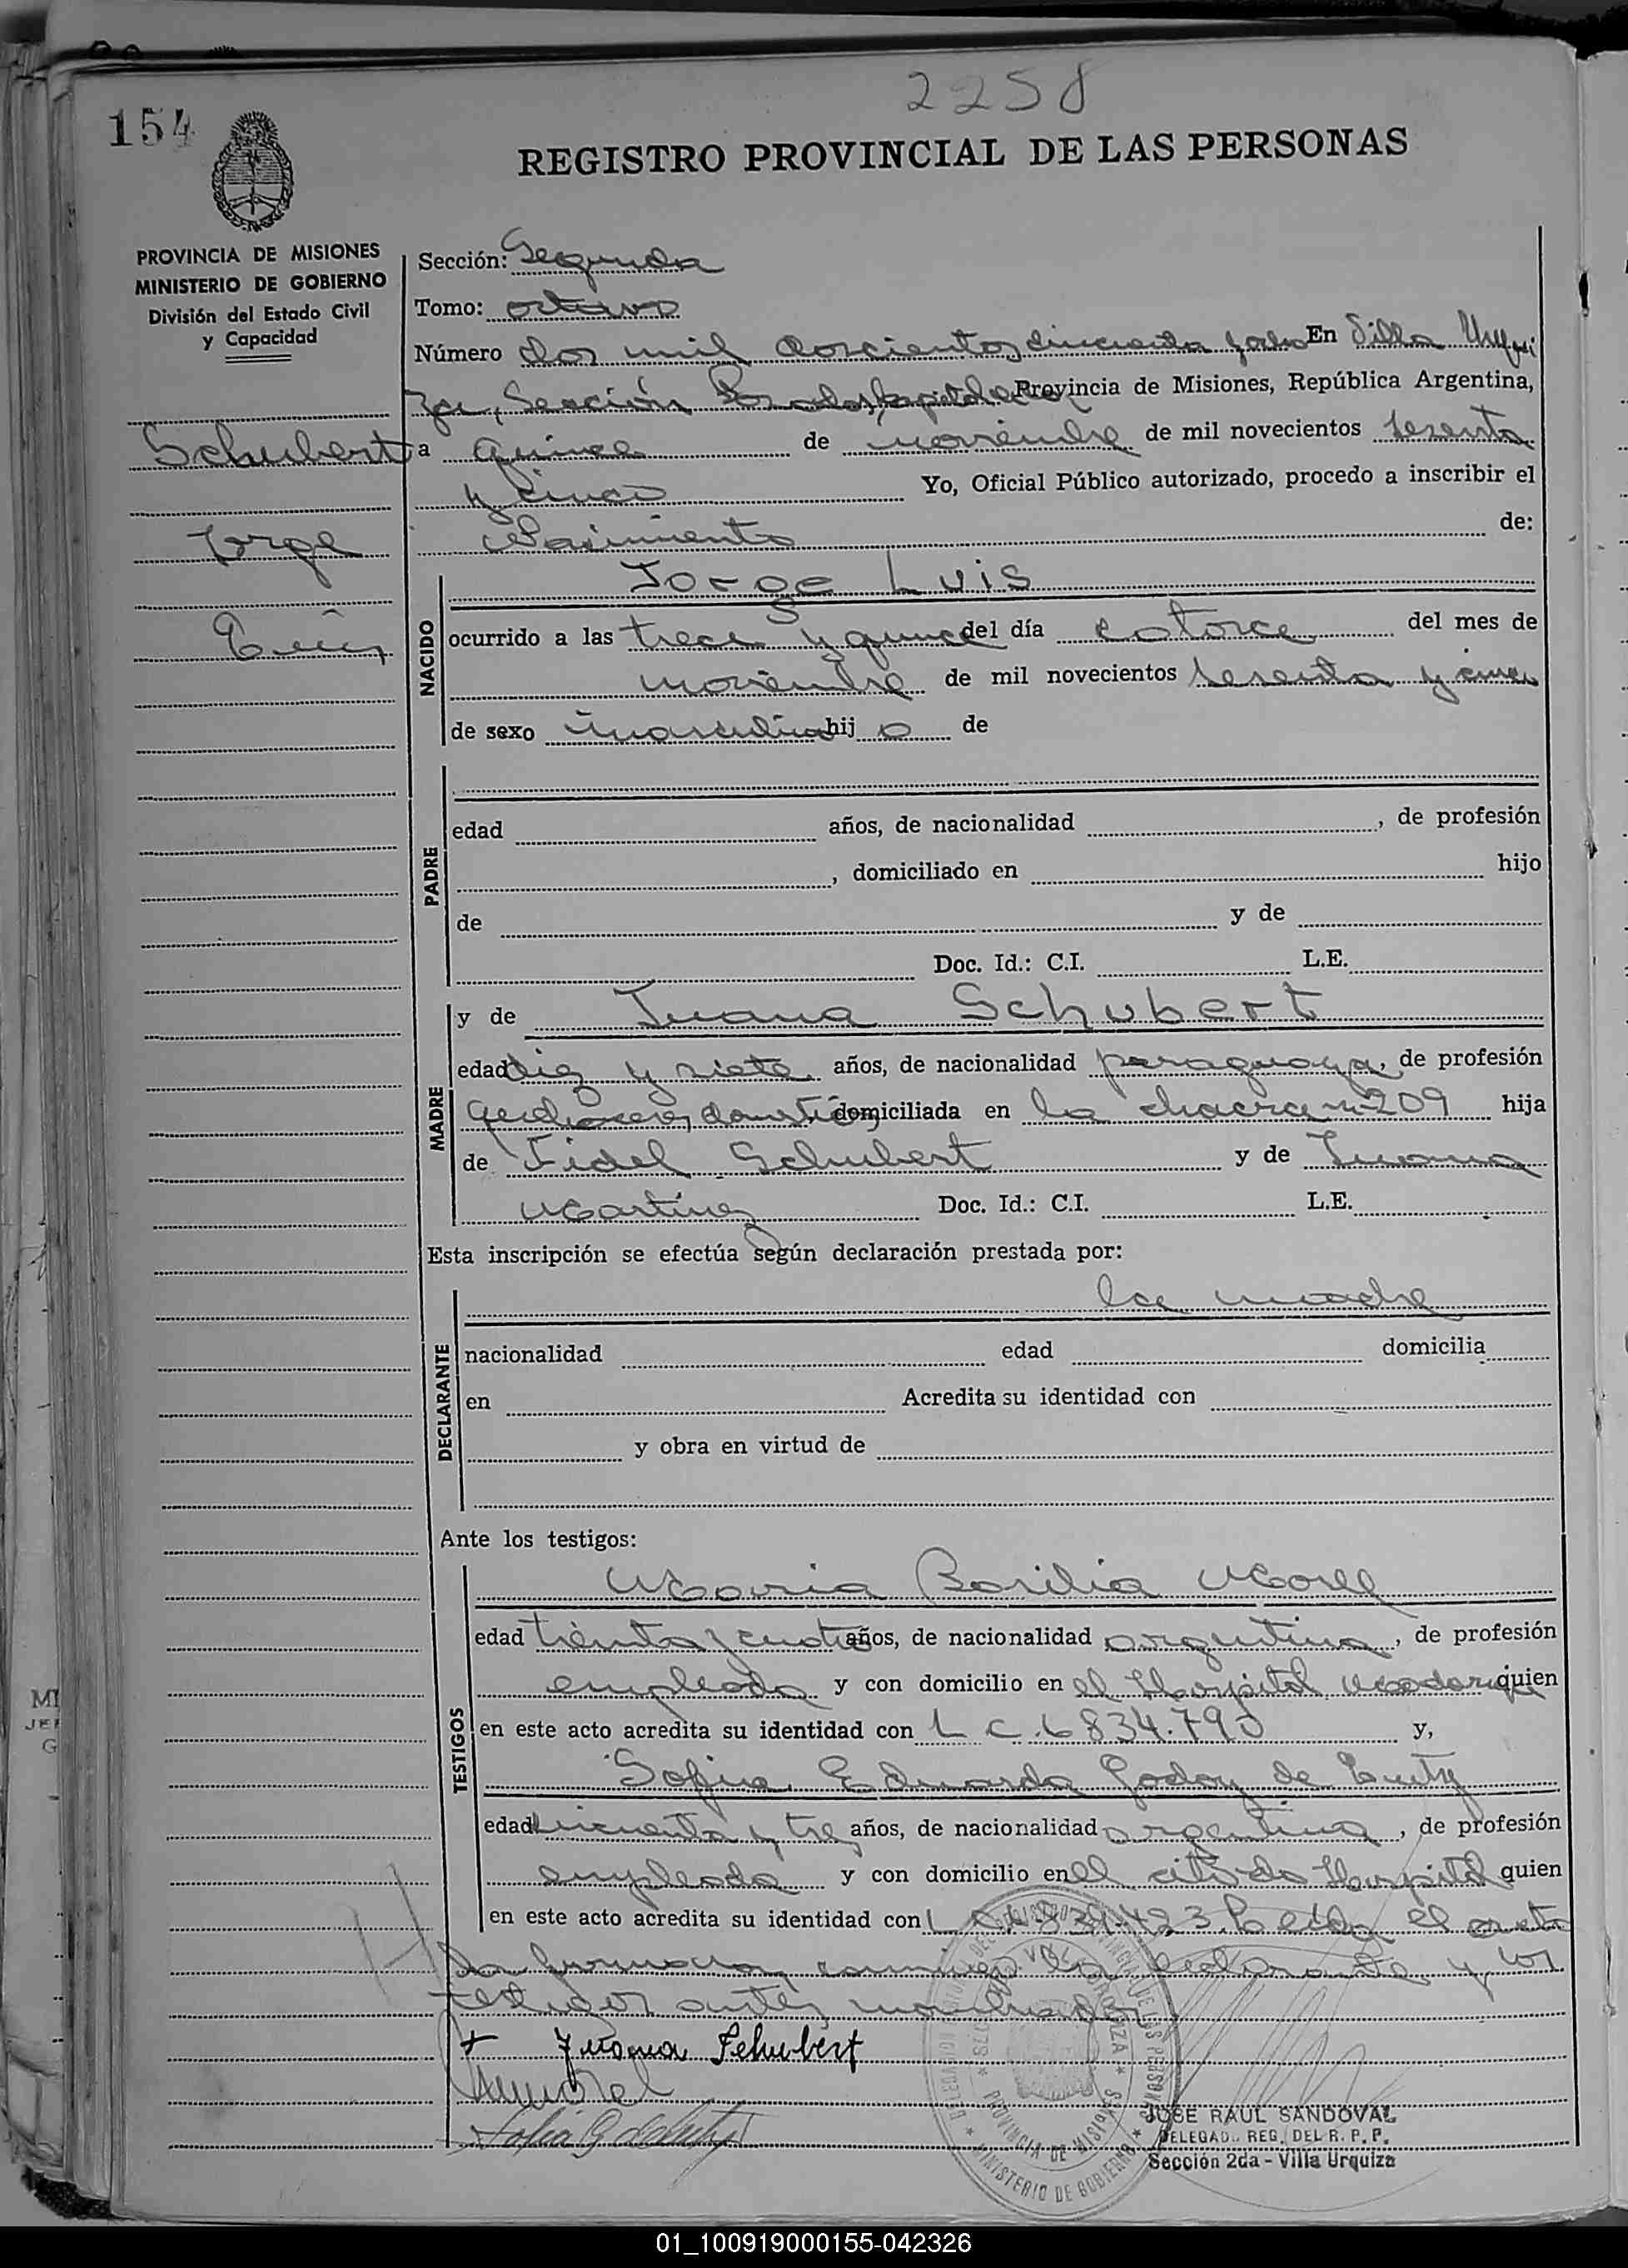 2258
154
REGISTRO PROVINCIAL DE LAS PERSONAS
PROVINCIA DE MISIONES
MINISTERIO DE GOBIERNO
División del Estado Civil
y Capacidad
Schubert
Jorge
Luis
Sección: Segunda
Tomo: octavo
Número dos mil doscientos cincuenta y ocho En Villa Urqui
za, Sección Posadas, Capital de la Provincia de Misiones, República Argentina,
a quince de noviembre de mil novecientos sesenta
y cinco Yo, Oficial Público autorizado, procedo a inscribir el
Nacimiento de:
NACIDO
Jorge Luis
ocurrido a las trece y quince del día catorce del mes de
noviembre de mil novecientos sesenta y cinco
de sexo masculino hijo de
PADRE
edad años, de nacionalidad , de profesión
, domiciliado en hijo
de y de
Doc. Id.: C.I. L.E.
MADRE
y de Juana Schubert
edad diez y siete años, de nacionalidad paraguaya, de profesión
quehaceres domésticos domiciliada en la chacra nº 209 hija
de Fidel Schubert y de Juana
Martínez Doc. Id.: C.I. L.E.
Esta inscripción se efectúa según declaración prestada por:
DECLARANTE
la madre
nacionalidad edad domicilia
en Acredita su identidad con
y obra en virtud de
Ante los testigos:
TESTIGOS
Maria Basilia Morel
edad treinta y cuatro años, de nacionalidad argentina, de profesión
empleada y con domicilio en el Hospital Madariaga quien
en este acto acredita su identidad con L C. 6834.790 y,
Sofia Eduarda Godoy de
edad cincuenta y tres años, de nacionalidad argentina, de profesión
empleada y con domicilio en el citado Hospital quien
en este acto acredita su identidad con L Leida el acta
la firman conmigo la declarante y los
testigos antes nombrados
+ Juana Schubert
JOSE RAUL SANDOVAL
DELEGAD.. REG. DEL R. P. P.
Sección 2da - Villa Urquiza
PROVINCIA DE MISIONES
MINISTERIO DE GOBIERNO
01_100919000155-042326